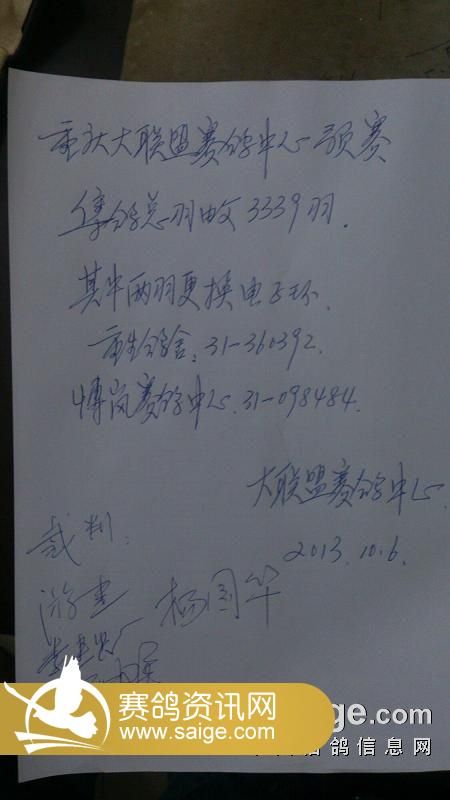 重庆大联盟赛鸽中心预赛
集鸽总羽数3339羽.
其中两羽更换电子环.
重生鸽舍:31-360392.
博岚赛鸽中心.31-098484.
大联盟赛鸽中心.
2013.10.6.
裁判:
杨国华
赛鸽资讯网
www.saige.com
ige.com
鸽信息网